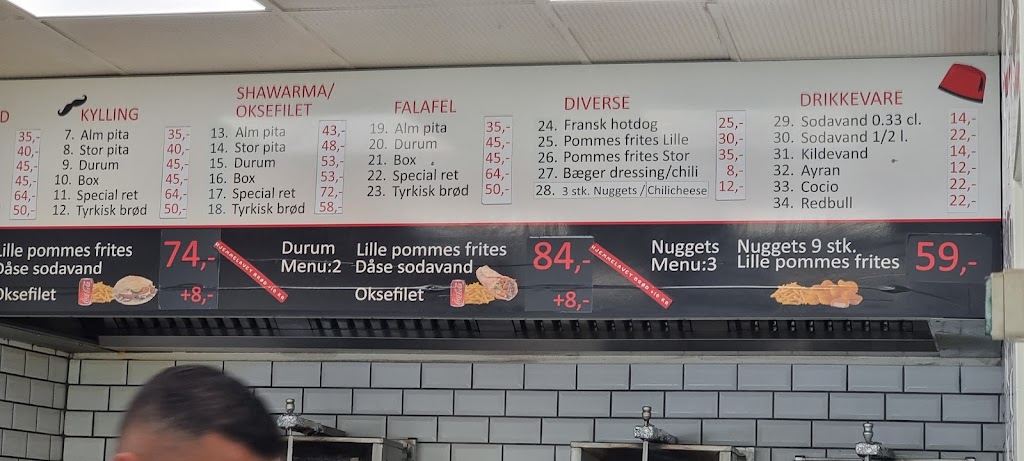 D
35,-
40,-
45,-
45,-
64,-
50,-
KYLLING
7. Alm pita 35,-
8. Stor pita 40,-
9. Durum 45,-
10. Box 45,-
11. Special ret 64,-
12. Tyrkisk brød 50,-
SHAWARMA/
OKSEFILET
13. Alm pita 43,-
14. Stor pita 48,-
15. Durum 53,-
16. Box 53,-
17. Special ret 72,-
18. Tyrkisk brød 58,-
FALAFEL
19. Alm pita 35,-
20. Durum 45,-
21. Box 45,-
22. Special ret 64,-
23. Tyrkisk brød 50,-
DIVERSE
24. Fransk hotdog 25,-
25. Pommes frites Lille 30,-
26. Pommes frites Stor 35,-
27. Bæger dressing/chili 8,-
28. 3 stk. Nuggets / Chilicheese 12,-
DRIKKEVARE
29. Sodavand 0.33 cl. 14,-
30. Sodavand 1/2 l. 22,-
31. Kildevand 14,-
32. Ayran 12,-
33. Cocio 22,-
34. Redbull 22,-
Lille pommes frites 74,-
Dåse sodavand
Oksefilet +8,-
HJEMMELAVET BRØD +10 KR
Durum
Menu:2
Lille pommes frites 84,-
Dåse sodavand
Oksefilet +8,-
HJEMMELAVET BRØD +10 KR
Nuggets
Menu:3
Nuggets 9 stk. 59,-
Lille pommes frites